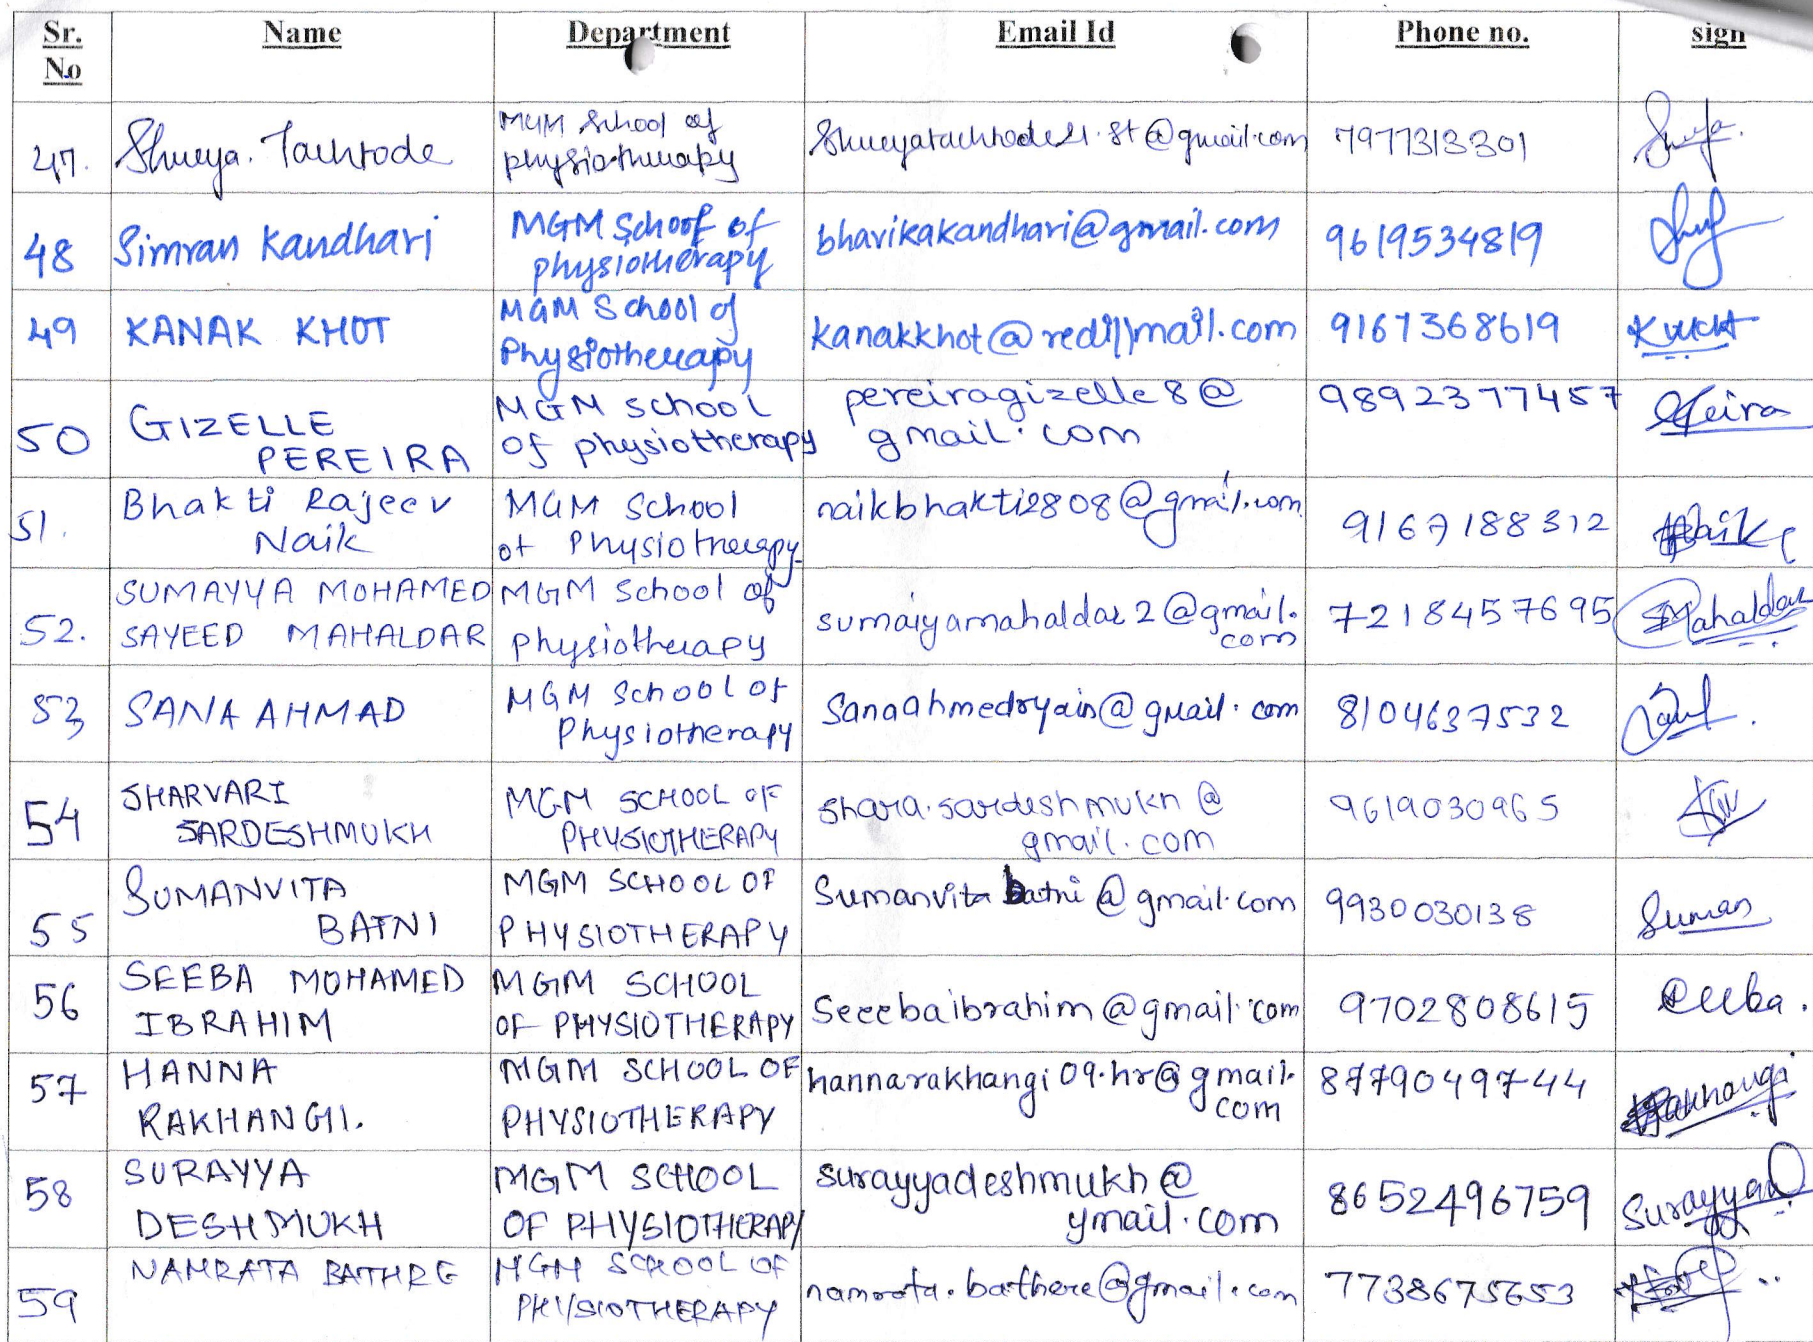 Sr. No Name Department Email Id Phone no. sign
47. Shreya Tachrode MGM School of physiotherapy 7977313301
48 Simran Kandhari MGM School of physiotherapy bhavikakandhari@gmail.com 9619534819
49 KANAK KHOT MGM School of Physiotherapy kanakkhot@rediffmail.com 9167368619
50 GIZELLE PEREIRA MGM School of physiotherapy pereiragizelle8@gmail.com 9892377457
51. Bhakti Rajeev Naik MGM School of Physiotherapy naikbhakti2808@gmail.com 9167188312 Naik
52. SUMAYYA MOHAMED SAYEED MAHALDAR MGM School of physiotherapy sumaiyamahaldar2@gmail.com 7218457695 SMahaldar
53 SANA AHMAD MGM School of Physiotherapy 8104637532
54 SHARVARI SARDESHMUKH MGM SCHOOL OF PHYSIOTHERAPY 9619030965
55 SUMANVITA BATNI MGM SCHOOL OF PHYSIOTHERAPY Sumanvitabatni@gmail.com 9930030138 Suman
56 SEEBA MOHAMED IBRAHIM MGM SCHOOL OF PHYSIOTHERAPY Seeebaibrahim@gmail.com 9702808615 Seeba.
57 HANNA RAKHANGI. MGM SCHOOL OF PHYSIOTHERAPY hannarakhangi09.hr@gmail.com 8779049744 Rakhangi
58 SURAYYA DESHMUKH MGM SCHOOL OF PHYSIOTHERAPY surayyadeshmukh@ymail.com 8652496759 Surayya
59 NAMRATA BATHRE MGM SCHOOL OF PHYSIOTHERAPY namrata.bathere@gmail.com 7738675653